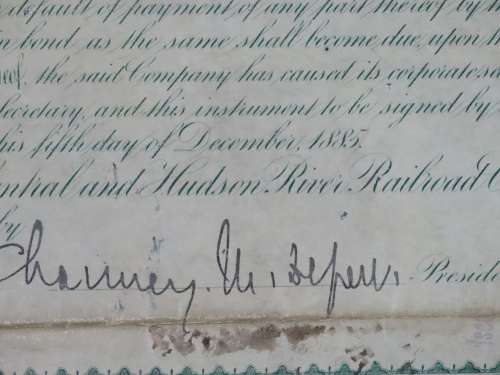 default of payment of any part thereof by th
in bond, as the same shall become due, upon t
reof, the said Company has caused its corporate se
Secretary, and this instrument to be signed by
his fifth day of December, 1885.
entral and Hudson River Railroad C
by
Chauncey. M. Depew. Preside